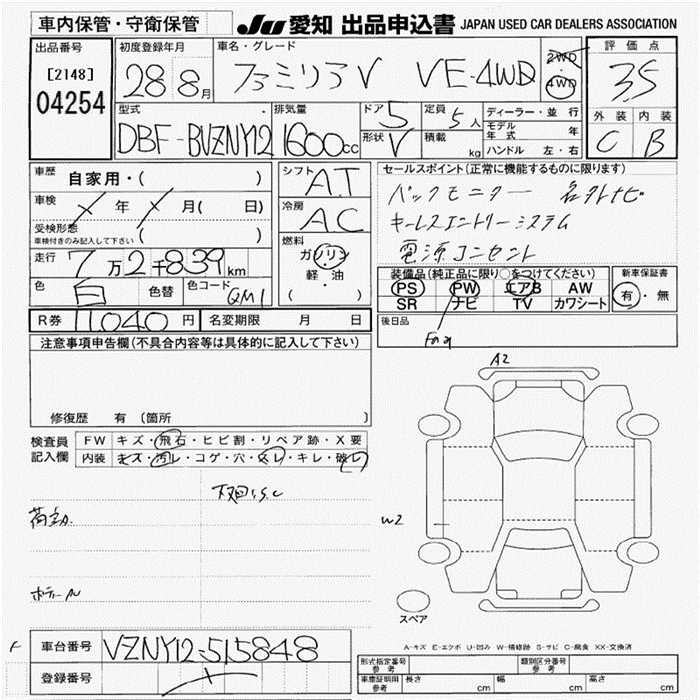 車内保管・守衛保管
JU 愛知 出品申込書 JAPAN USED CAR DEALERS ASSOCIATION
出品番号
[2148]
04254
初度登録年月
28 8月
車名・グレード
ファミリアV VE-4WD
2WD
4WD
評価点
3.5
外装 内装
C B
型式
DBF-BVZNY12
排気量
1600cc
ドア 5
形状 V
定員 5人
積載 kg
ディーラー・並行
モデル年式 年
ハンドル 左・右
車歴 自家用・( )
車検 年 月( 日)
受検形態
車検付きのみ記入して下さい ( )
走行 7万2千839km
色 白 色替 色コード QM1
シフト A.T
冷房 AC
燃料
ガソリン
軽・油
( )
セールスポイント(正常に機能するものに限ります)
バックモニター 名外ナビ
キーレスエントリーシステム
電源コンセント
装備品(純正品に限り○をつけてください)
PS PW エアB AW
SR ナビ TV カワシート
新車保証書
有・無
R券 11,040円 名変期限 月 日
後日品
注意事項申告欄(不具合内容等は具体的に記入して下さい)
修復歴 有(箇所 )
検査員記入欄
FW キズ・飛石・ヒビ割・リペア跡・X要
内装 キズ・汚レ・コゲ・穴・スレ・キレ・破レ
下廻り S.C
A2
W2
スペア
A-キズ E-エクボ U-凹み W-補修跡 S-サビ C-腐食 XX-交換済
F
車台番号 VZNY12-515848
登録番号
形式指定番号 参考
類別区分番号 参考
車庫証明用 参考 長さ cm 幅 cm 高さ cm